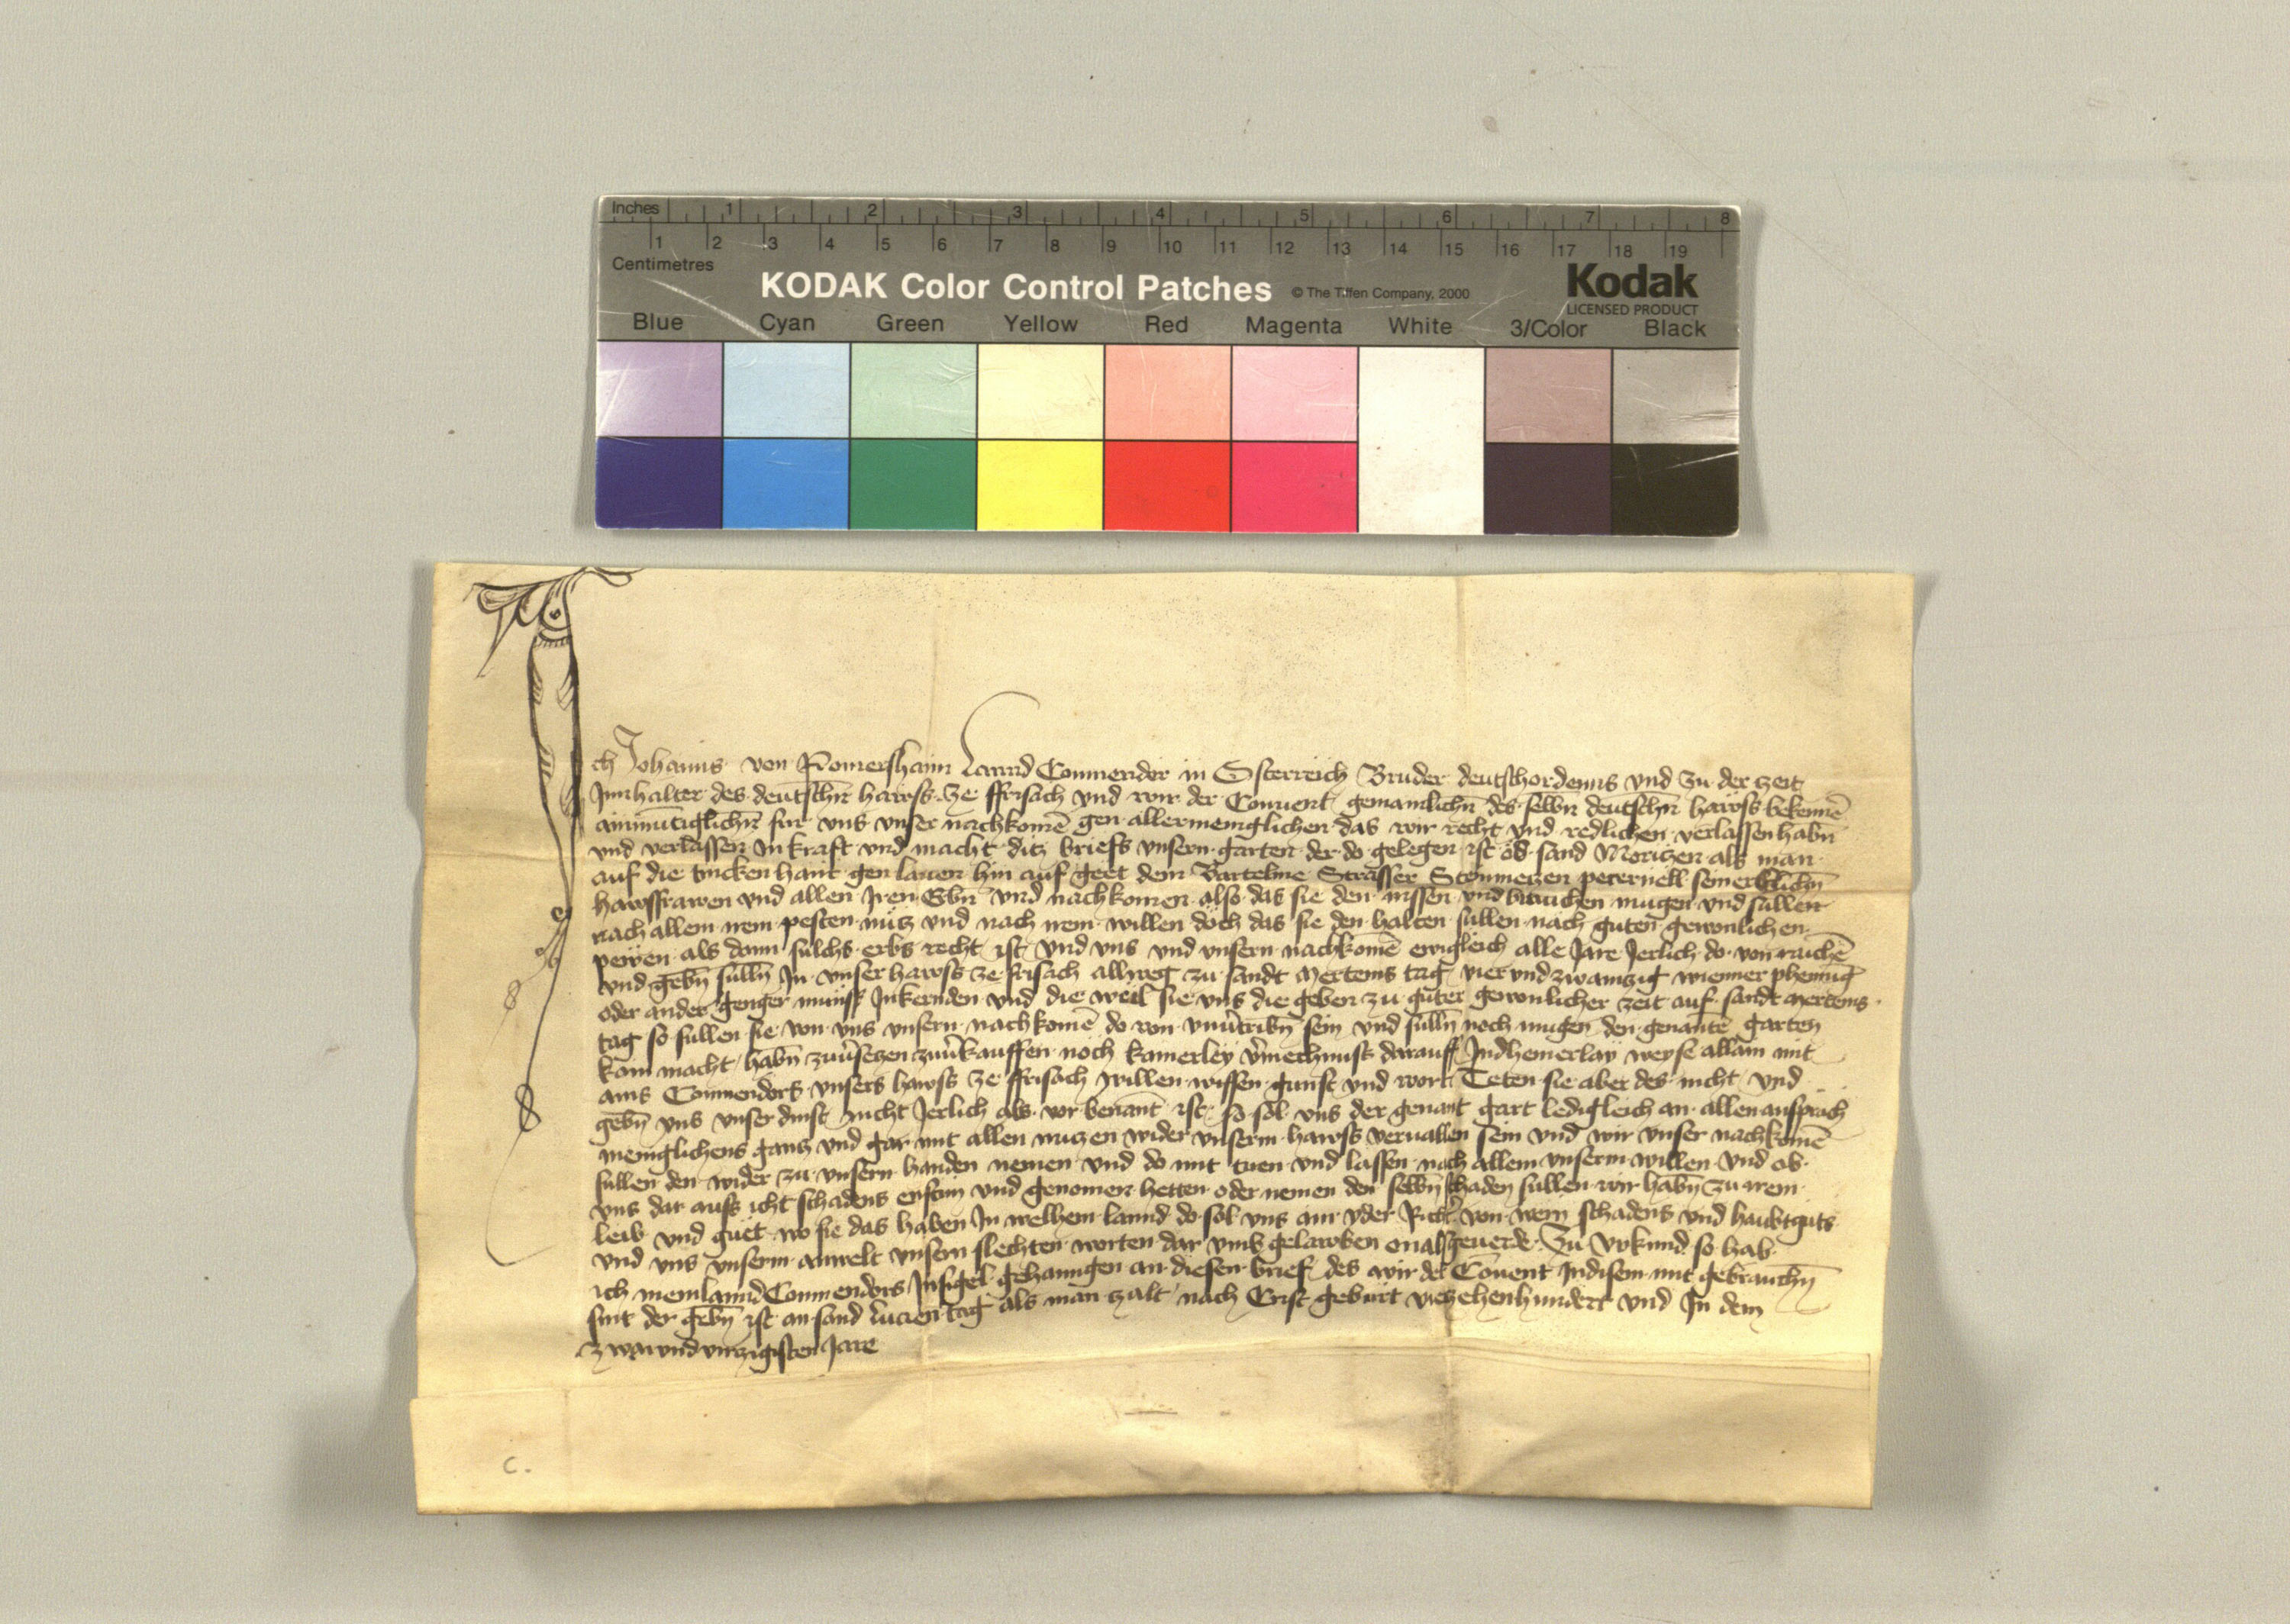 Inches 1 2 3 4 5 6 7 8
1 2 3 4 5 6 7 8 9 10 11 12 13 14 15 16 17 18 19
Centimetres
KODAK Color Control Patches © The Tiffen Company, 2000 Kodak
LICENSED PRODUCT
Blue Cyan Green Yellow Red Magenta White 3/Color Black
Ich Johanns von Pomershaim Lannd Commendor in Osterreich Bruder deutschordenns vnd zu der zeit
Innhalter des deutschn̄ hawss ze ffrisach vnd wir der Conuent gemainlichn̄ des selbn̄ deutschn̄ hawss bekennē
ainmutiglichn̄ fur vns vnser nachkomē gen allermeniglichen das wir recht vnd redlichen verlassen habn̄
vnd verlassen In kraft vnd macht ditz briefs vnsern garten der do gelegen ist ob sand Moritzen als man
auf die hant gen hin auf geet dem Bartelme Strasser Stemmetzen peternell seiner elichn̄
hawsfrawen vnd allen Iren Erbn̄ vnd nachkomen also das sie den nissen vnd brauchen mugen vnd sullen
nach allem irem pesten nutz vnd nach irem willen doch das sie den halten sullen nach guten gewonlichen
pewen als dann sulchs erbs recht ist vnd vns vnd vnsern nachkomē ewigleich alle Jare Jerlich do von raichē
vnd gebn̄ sulln̄ In vnser hawss ze frisach allweg zu sandt Mertenis tag vier vnd zwainzig wienner phennig
oder ander genger munss Inkernden vnd die weil sie vns die geben zu guter gewonlicher zeit auf sandt Mertenis
tag so sullen sie von vns vnsern nachkomē do von vnu̓tribn̄ sein vnd sulln̄ noch mugen den genantē garten
kain macht habn̄ zuu̓setzen zuu̓kauffen noch kainerley darauff Indhemerlay weyse allain mit
ains Commendors vnsers hawss ze ffrisach willen wissen gunst vnd wort Teten sie aber des nicht vnd
gebn̄ vns vnser dinst nicht Jerlich als vor benant ist so sol vns der genant gart ledigleich an allen ansprach
meniglichens gantz vnd gar mit allen nutzen wider vnserm hawss veruallen sein vnd wir vnser nachkomē
sullen den wider zu vnsern handen nemen vnd do mit tuen vnd lassen nach allem vnserm willen vnd ob
vns dar auss icht schadens vnd genomen hetten oder nemen den selbn̄ schaden sullen wir habn̄ zu irem
leib vnd guet wo sie das haben In welhem lannd do sol vns ein yder Richt̓ von wern schadens vnd haubtguts
vnd vns vnserm anwelt vnsern slechten worten dar vmb gelawben on als geuerde Zu vrkund so hab
ich mein lannd Commendors Insigel gehanngen an diesen brief des wir der Conuent Indisem mit gebrauchn̄
sint der gebn̄ ist an sand lucien tag als man zalt nach Crist geburt vierzehenhundert vnd In dem
zwaivndvirzigisten Jare
C.